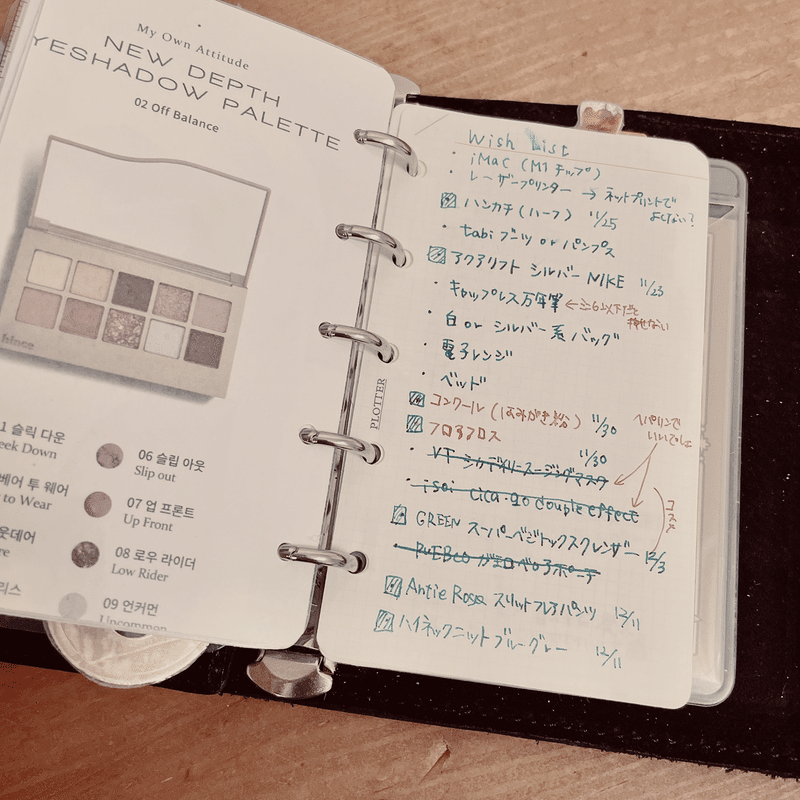 My Own Attitude
NEW DEPTH
YESHADOW PALETTE
02 Off Balance
hince
1 슬릭 다운
eek Down
베어 투 웨어
to Wear
웃데어
re
리스
06 슬립 아웃
Slip out
07 업 프론트
Up Front
08 로우 라이더
Low Rider
09 언커먼
Uncommon
PLOTTER
Wish List
・iMac (M1 チップ)
・レーザープリンター → ネットプリントで
よくない?
ハンカチ (ハーフ) 11/25
・tabi ブーツ or パンプス
アクアリフト シルバー NIKE 11/23
・キャップレス万年筆 ←
・白 or シルバー系バッグ
・電子レンジ
・ベッド
コンクール (はみがき粉) 11/30
フロアフロス 11/30
ヘパリンで
いいでしょ
・VT シカデイリースージングマスク
・isoi cica-go double effect
コスメ
GREEN スーパーベジトックスクレンザー 12/3
・PUEBCO ガマ口ベロアポーチ
Antie Rosa スリットフレアパンツ 12/11
ハイネックニット ブルーグレー 12/11